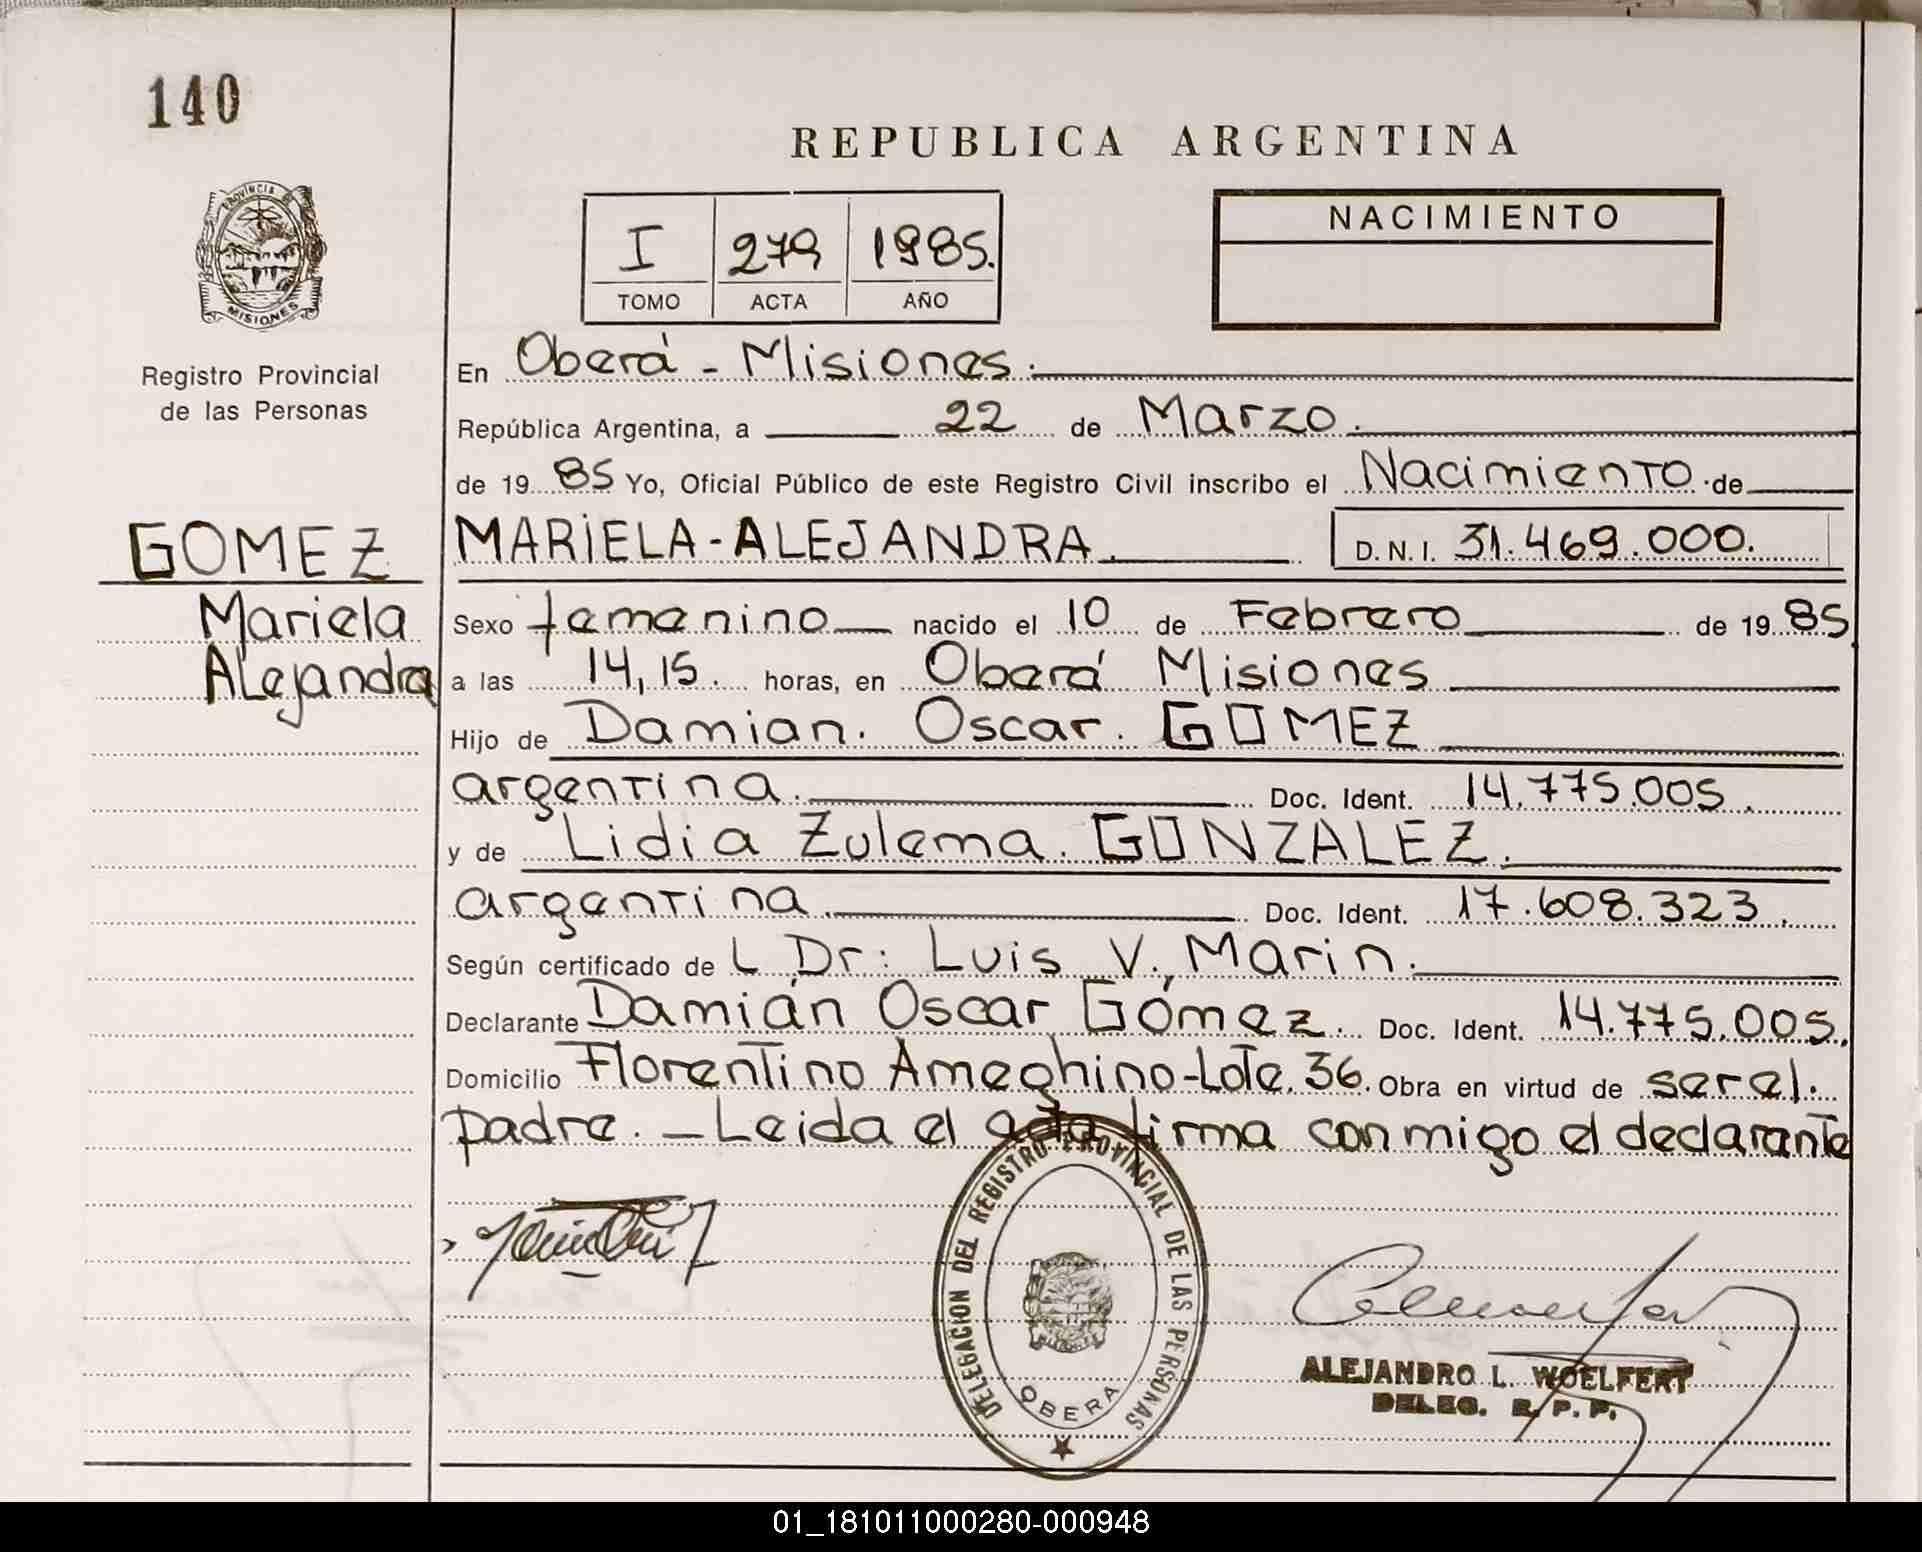 140
REPUBLICA ARGENTINA
PROVINCIA DE
MISIONES
Registro Provincial
de las Personas
I 279 1985.
TOMO ACTA AÑO
NACIMIENTO
En Oberá - Misiones.
República Argentina, a 22 de Marzo.
de 1985 Yo, Oficial Público de este Registro Civil inscribo el Nacimiento de
GOMEZ
Mariela
Alejandra
MARIELA-ALEJANDRA. D.N.I. 31.469.000.
Sexo femenino nacido el 10 de Febrero de 1985
a las 14,15. horas, en Oberá Misiones
Hijo de Damian. Oscar. GOMEZ
argentina. Doc. Ident. 14.775.005.
y de Lidia Zulema. GONZALEZ.
argentina. Doc. Ident. 17.608.323.
Según certificado de L Dr: Luis V. Marin.
Declarante Damián Oscar Gómez. Doc. Ident. 14.775.005.
Domicilio Florentino Ameghino-Lote. 36. Obra en virtud de ser el.
padre. - Leida el acta firma conmigo el declarante
DELEGACION DEL REGISTRO PROVINCIAL DE LAS PERSONAS
OBERA
ALEJANDRO L. WOELFERT
DELEG. R. P. P.
01_181011000280-000948